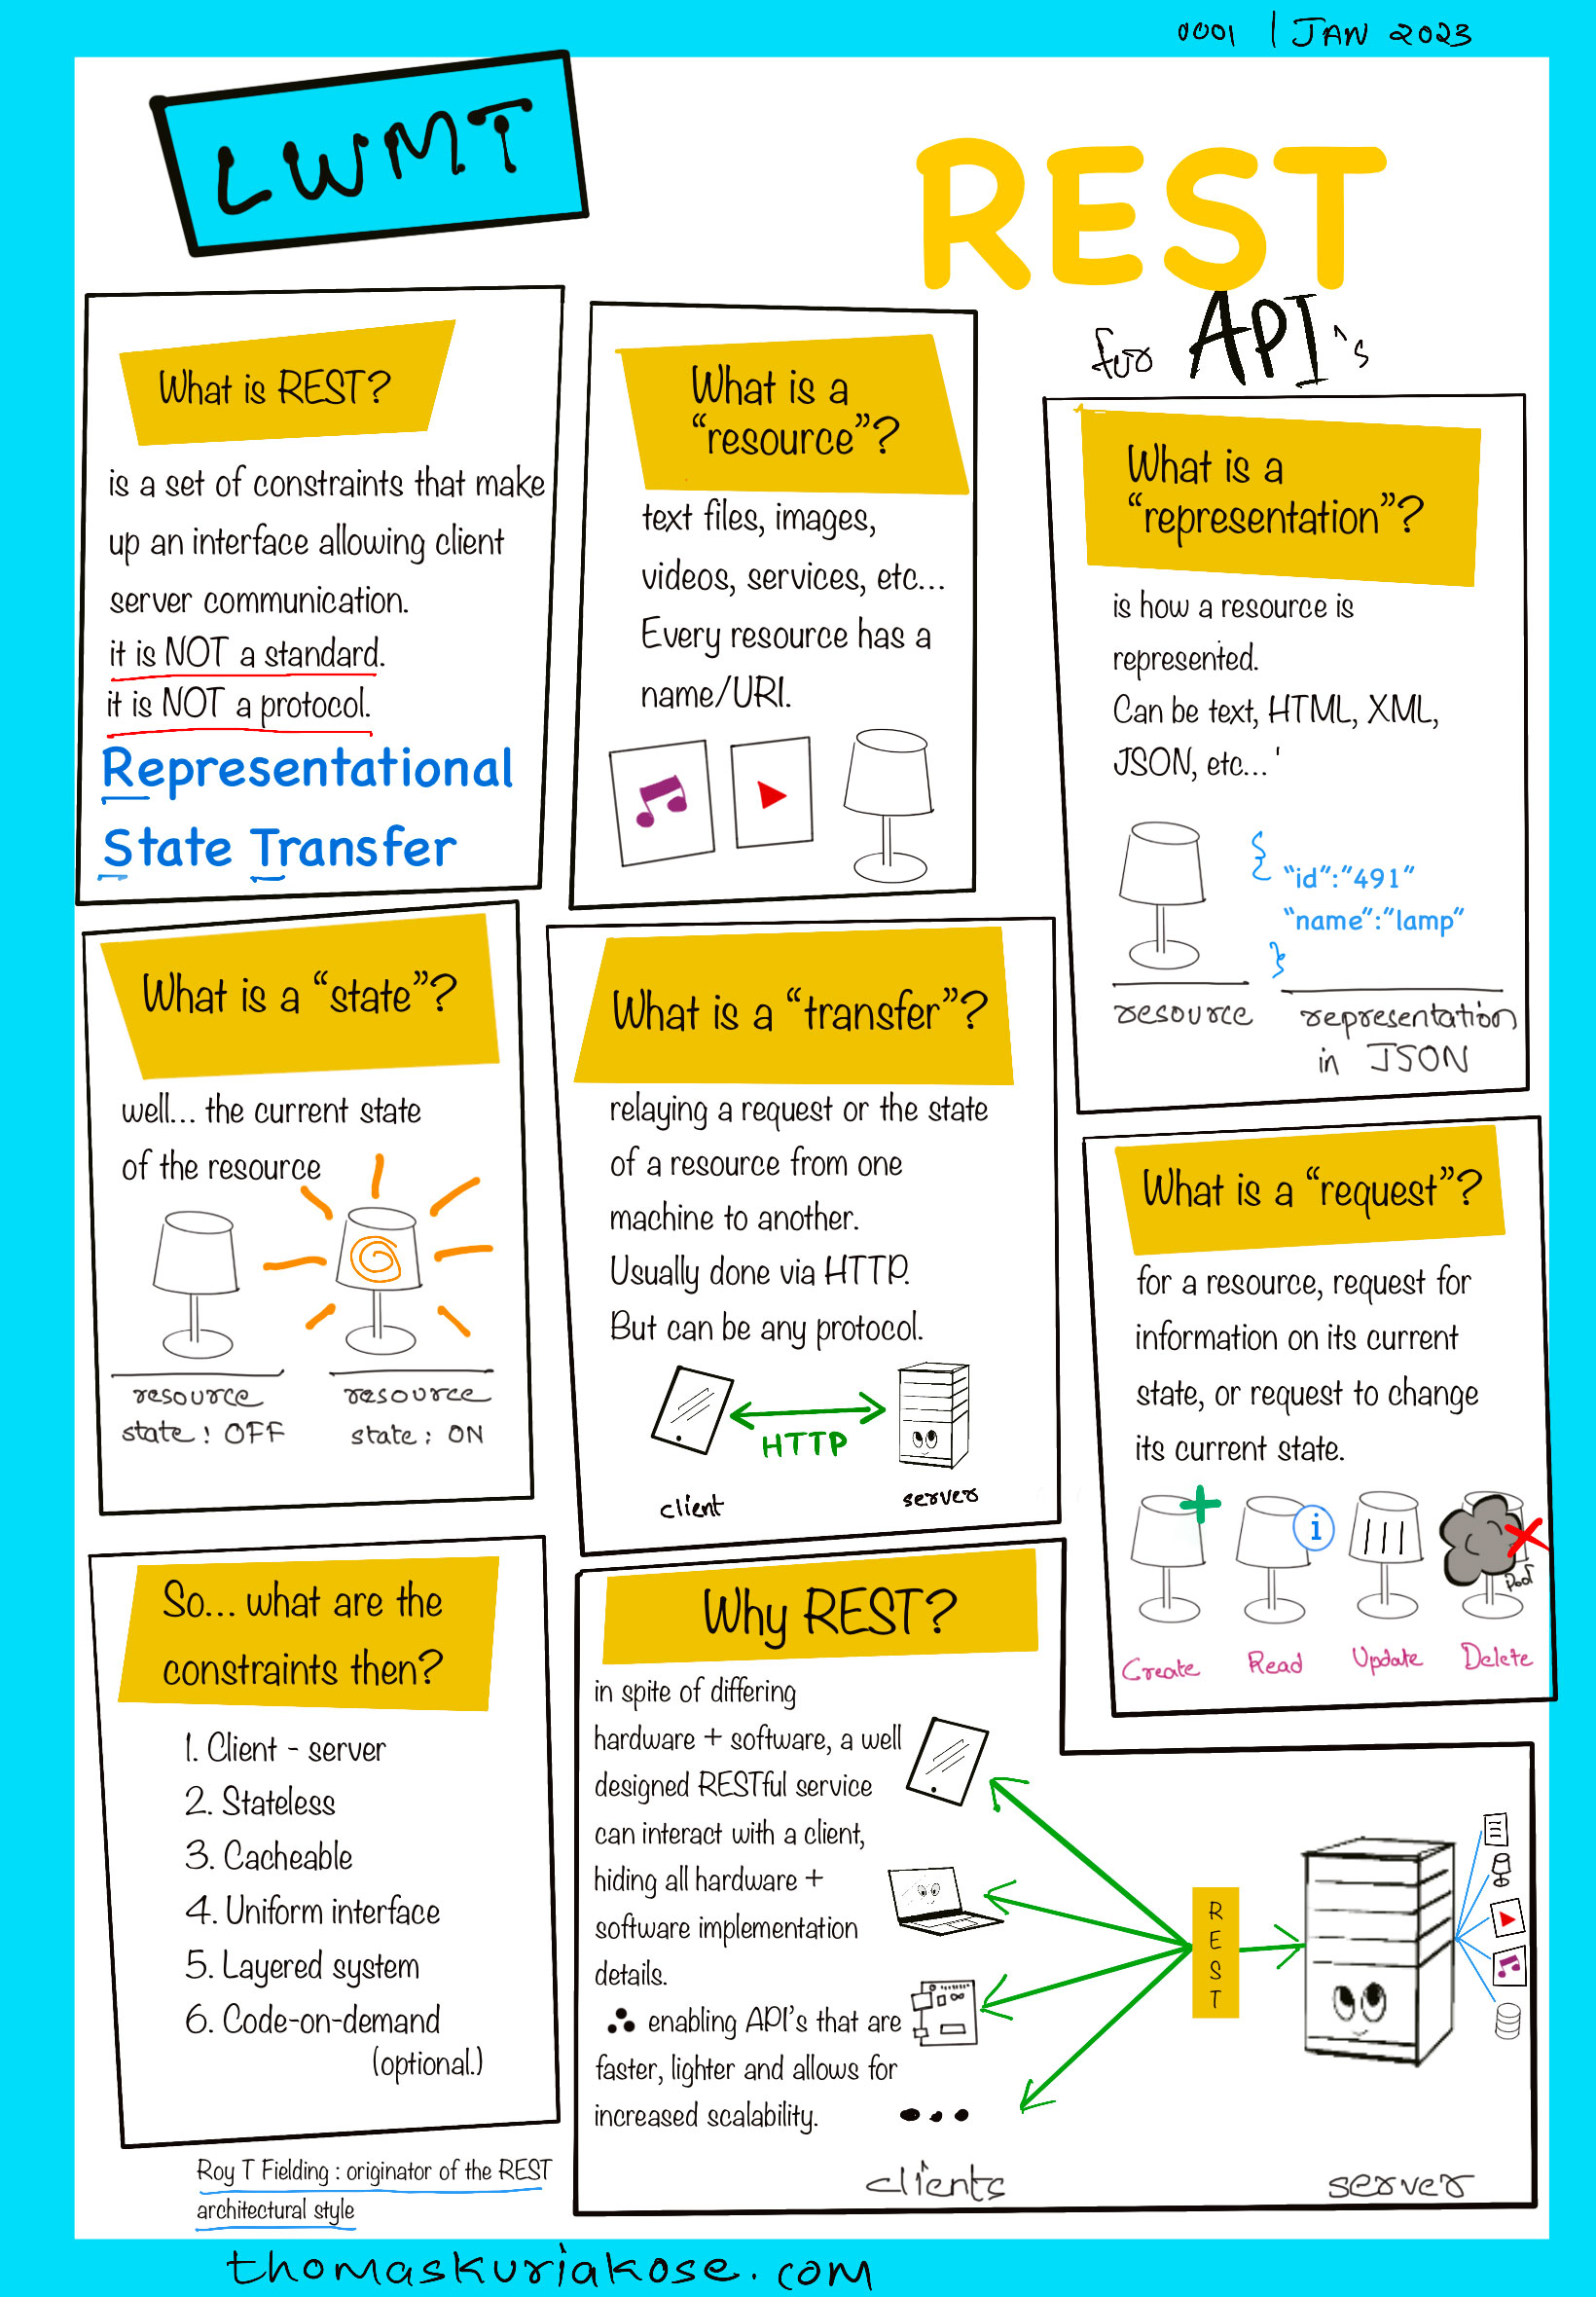 0001 | JAN 2023
LWMT
REST
for API's
What is REST?
is a set of constraints that make
up an interface allowing client
server communication.
it is NOT a standard.
it is NOT a protocol.
Representational
State Transfer
What is a
“resource”?
text files, images,
videos, services, etc...
Every resource has a
name/URI.
What is a
“representation”?
is how a resource is
represented.
Can be text, HTML, XML,
JSON, etc... '
{
“id”:”491”
“name”:”lamp”
}
resource
representation
in JSON
What is a “state”?
well... the current state
of the resource
resource
state: OFF
resource
state: ON
What is a “transfer”?
relaying a request or the state
of a resource from one
machine to another.
Usually done via HTTP.
But can be any protocol.
HTTP
client
server
What is a “request”?
for a resource, request for
information on its current
state, or request to change
its current state.
i
Poof
Create
Read
Update
Delete
So... what are the
constraints then?
1. Client - server
2. Stateless
3. Cacheable
4. Uniform interface
5. Layered system
6. Code-on-demand
(optional.)
Why REST?
in spite of differing
hardware + software, a well
designed RESTful service
can interact with a client,
hiding all hardware +
software implementation
details.
∴ enabling API's that are
faster, lighter and allows for
increased scalability.
REST
clients
server
Roy T Fielding : originator of the REST
architectural style
thomaskuriakose.com